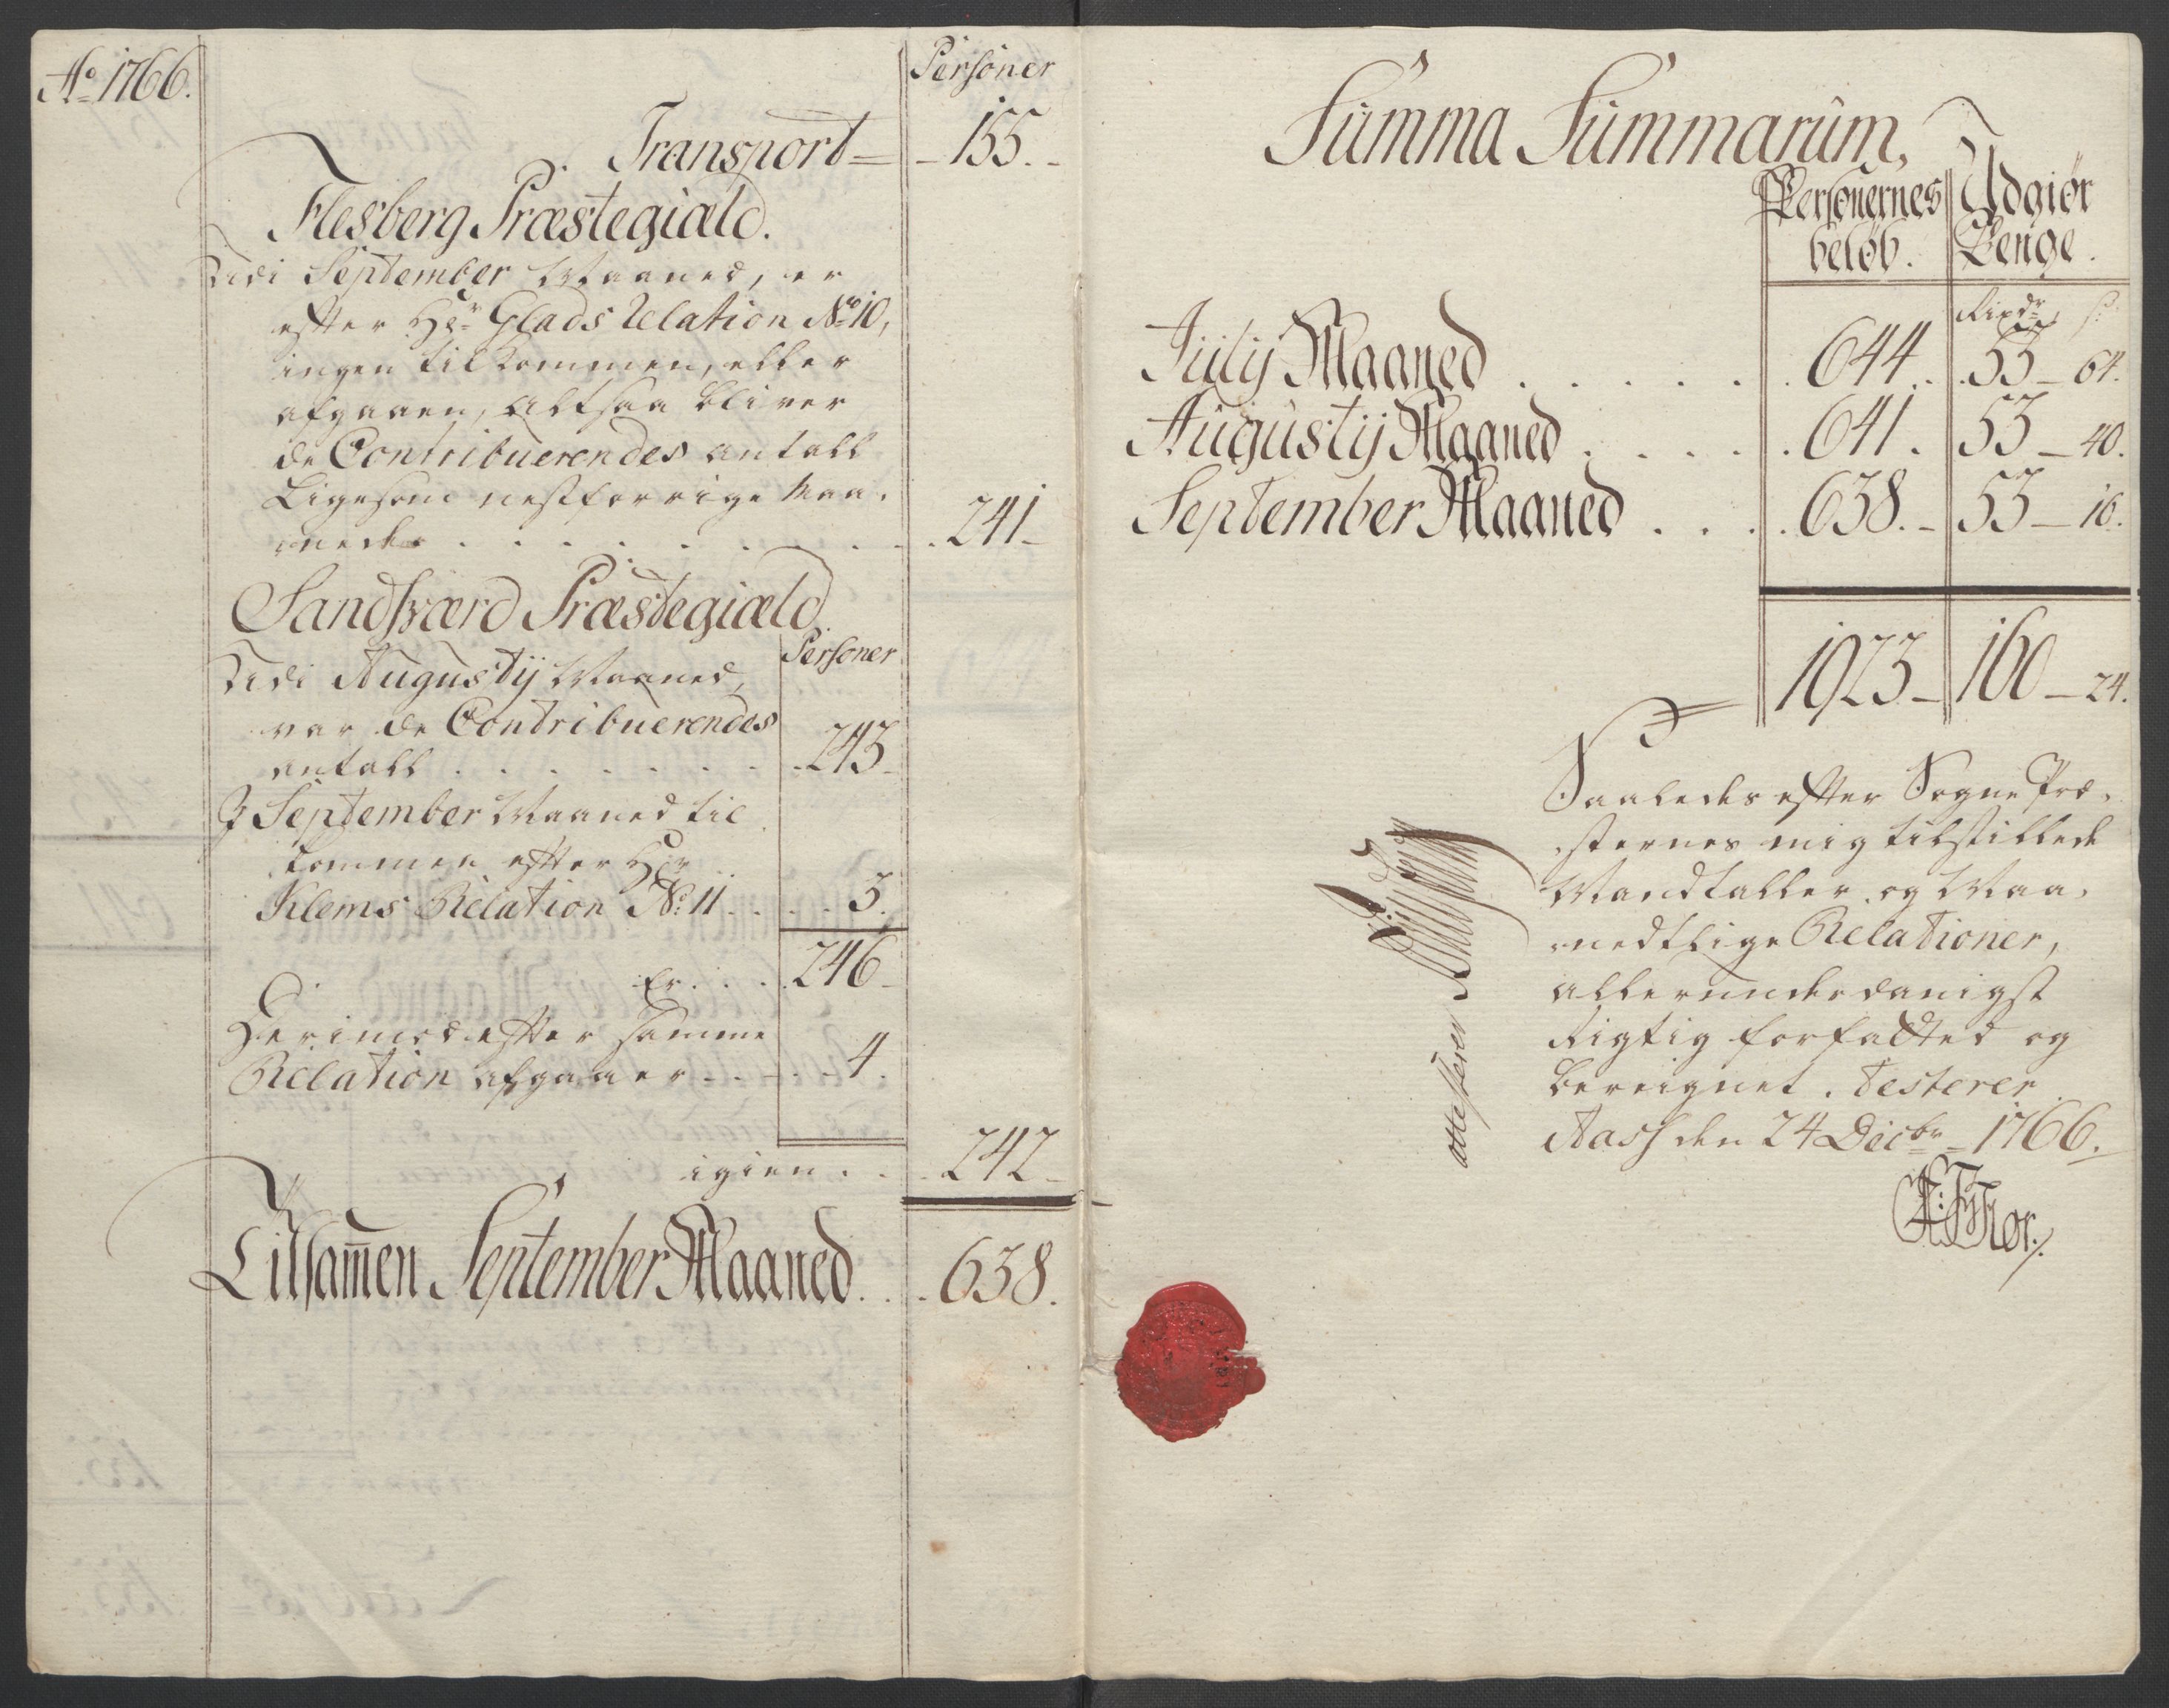 Ao 1766.
Personer
Transport = 155.
Flesberg Præstegiæld.
Udi September Maaned, er
efter Hr Glads Relation No 10,
ingen tilkommen, eller
afgaaen, altsaa bliver
de Contribuerendes antall
Ligesom nestforrige Maa-
neder . . . . . . . . 241
Sandsværd Præstegiæld.
Personer
Udi Augustij Maaned,
var de Contribuerendes
antall . . . . . . . 243
J September Maaned til
kommen efter Hr
Klems Relation No 11 . . . . 3.
Er . . . 246
Herimod efter samme
Relation afgaaer . . . . 4.
igien . . . 242
Tilsammen September Maaned . . . 638.
Summa Summarum,
Personernes beløb.
Udgiør Penge.
Rixdr s:
July Maaned . . . . . 644. 53 - 64.
Augustij Maaned . . . . . 641. 53 - 40.
September Maaned . . . . 638. - 53 - 16.
1923 - 160 - 24.
Saaledes efter Sogne Præ-
sternes mig tilstillede
Mandtaller og Maa-
nedtlige Relationer,
allerunderdanigst
Rigtig forfatted og
bereignet. Testerer
Aass den 24 Decbr 1766.
attesterer